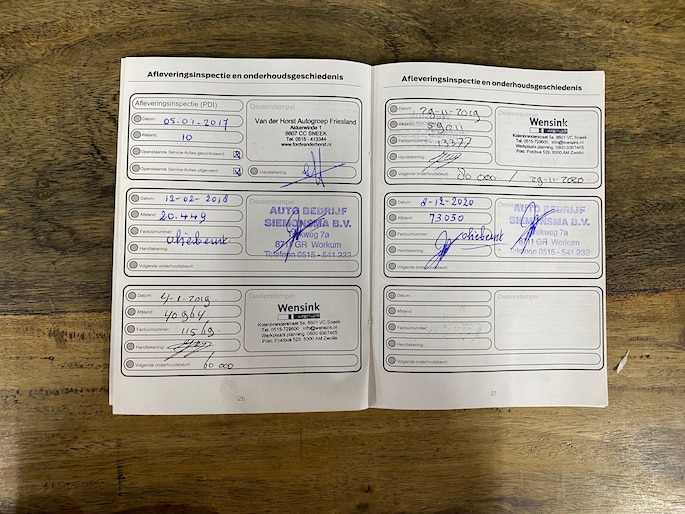 Afleveringsinspectie en onderhoudsgeschiedenis
Afleveringsinspectie (PDI)
Datum: 05-01-2017
Afstand: 10
Openstaande Service-Acties gecontroleerd
Openstaande Service-Acties uitgevoerd
Dealerstempel
Van der Horst Autogroep Friesland
Akkerwinde 1
8607 CC SNEEK
Tel. 0515 - 413344
www.fordvanderhorst.nl
Handtekening:
Datum: 12-02-2018
Afstand: 20.449
Factuurnummer:
Handtekening:
Volgende onderhoudsbeurt:
Dealerstempel
AUTO BEDRIJF
SIEMONSMA B.V.
8711 GR Workum
Telefoon 0515 - 541 232
Datum: 4-1-2019
Afstand: 40964
Factuurnummer: 11569
Handtekening:
Volgende onderhoudsbeurt: 60 000
Dealerstempel
Wensink
Kolenbranderstraat 5a, 8601 VC Sneek
Tel. 0515-729600 info@wensink.nl
Werkplaats planning: 0800-9367465
Post: Postbus 529, 8000 AM Zwolle
26
Afleveringsinspectie en onderhoudsgeschiedenis
Datum: 29-11-2019
Afstand: 59011
Factuurnummer: 13377
Handtekening:
Volgende onderhoudsbeurt: 80 000 / 29-11-2020
Wensink
Kolenbranderstraat 5a, 8601 VC Sneek
Tel. 0515-729600 info@wensink.nl
Werkplaats planning: 0800-9367465
Post: Postbus 529, 8000 AM Zwolle
Datum: 8-12-2020
Afstand: 73.050
Factuurnummer:
Handtekening:
Volgende onderhoudsbeurt:
Dealerstempel
AUTO BEDRIJF
SIEMONSMA B.V.
8711 GR Workum
Telefoon 0515 - 541 232
Datum:
Afstand:
Factuurnummer:
Handtekening:
Volgende onderhoudsbeurt:
Dealerstempel
27